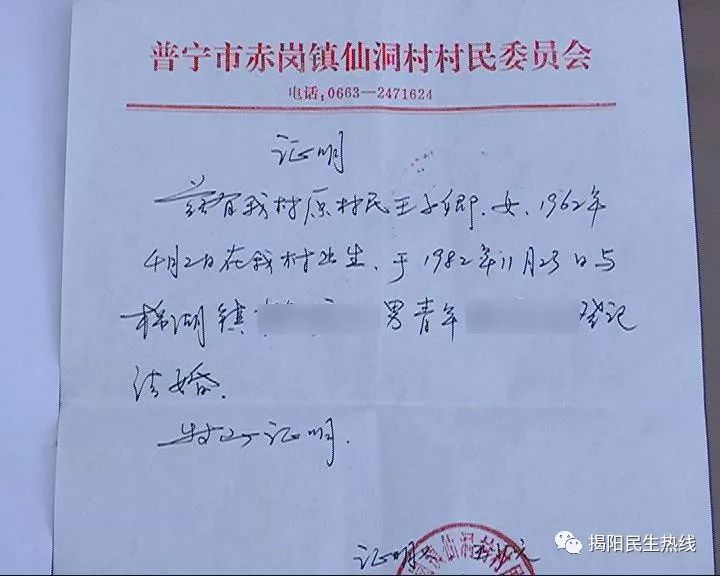 普宁市赤岗镇仙洞村村民委员会
电话:0663—2471624
证明
兹有我村原村民王子卿、女、1962年
4月2日在我村出生、于1982年11月23日与
梅湖镇 男青年 登记
结婚。
特此证明.
证明人
仙洞村
揭阳民生热线